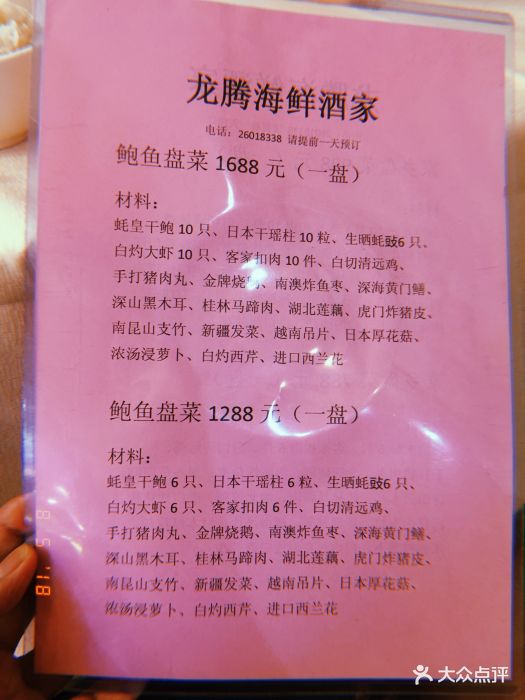 龙腾海鲜酒家
电话：26018338 请提前一天预订
鲍鱼盘菜 1688 元（一盘）
材料：
蚝皇干鲍 10 只、日本干瑶柱 10 粒、生晒蚝豉6 只、
白灼大虾 10 只、客家扣肉 10 件、白切清远鸡、
手打猪肉丸、金牌烧鹅、南澳炸鱼枣、深海黄门鳝、
深山黑木耳、桂林马蹄肉、湖北莲藕、虎门炸猪皮、
南昆山支竹、新疆发菜、越南吊片、日本厚花菇、
浓汤浸萝卜、白灼西芹、进口西兰花
鲍鱼盘菜 1288 元（一盘）
材料：
蚝皇干鲍 6 只、日本干瑶柱 6 粒、生晒蚝豉6 只、
白灼大虾 6 只、客家扣肉 6 件、白切清远鸡、
手打猪肉丸、金牌烧鹅、南澳炸鱼枣、深海黄门鳝、
深山黑木耳、桂林马蹄肉、湖北莲藕、虎门炸猪皮、
南昆山支竹、新疆发菜、越南吊片、日本厚花菇、
浓汤浸萝卜、白灼西芹、进口西兰花
'18 5 8
大众点评